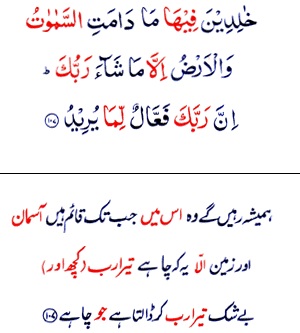 خٰلِدِيْنَ فِيْهَا مَا دَامَتِ السَّمٰوٰتُ
وَالْاَرْضُ اِلَّا مَا شَآءَ رَبُّكَ ؕ
اِنَّ رَبَّكَ فَعَّالٌ لِّمَا يُرِيْدُ ﴿۱۰۷﴾
ہمیشہ رہیں گے وہ اس میں جب تک قائم ہیں آسمان
اور زمین الّا یہ کہ چاہے تیرا رب (کچھ اور)
بے شک تیرا رب کر ڈالتا ہے جو چاہے ﴿۱۰۷﴾